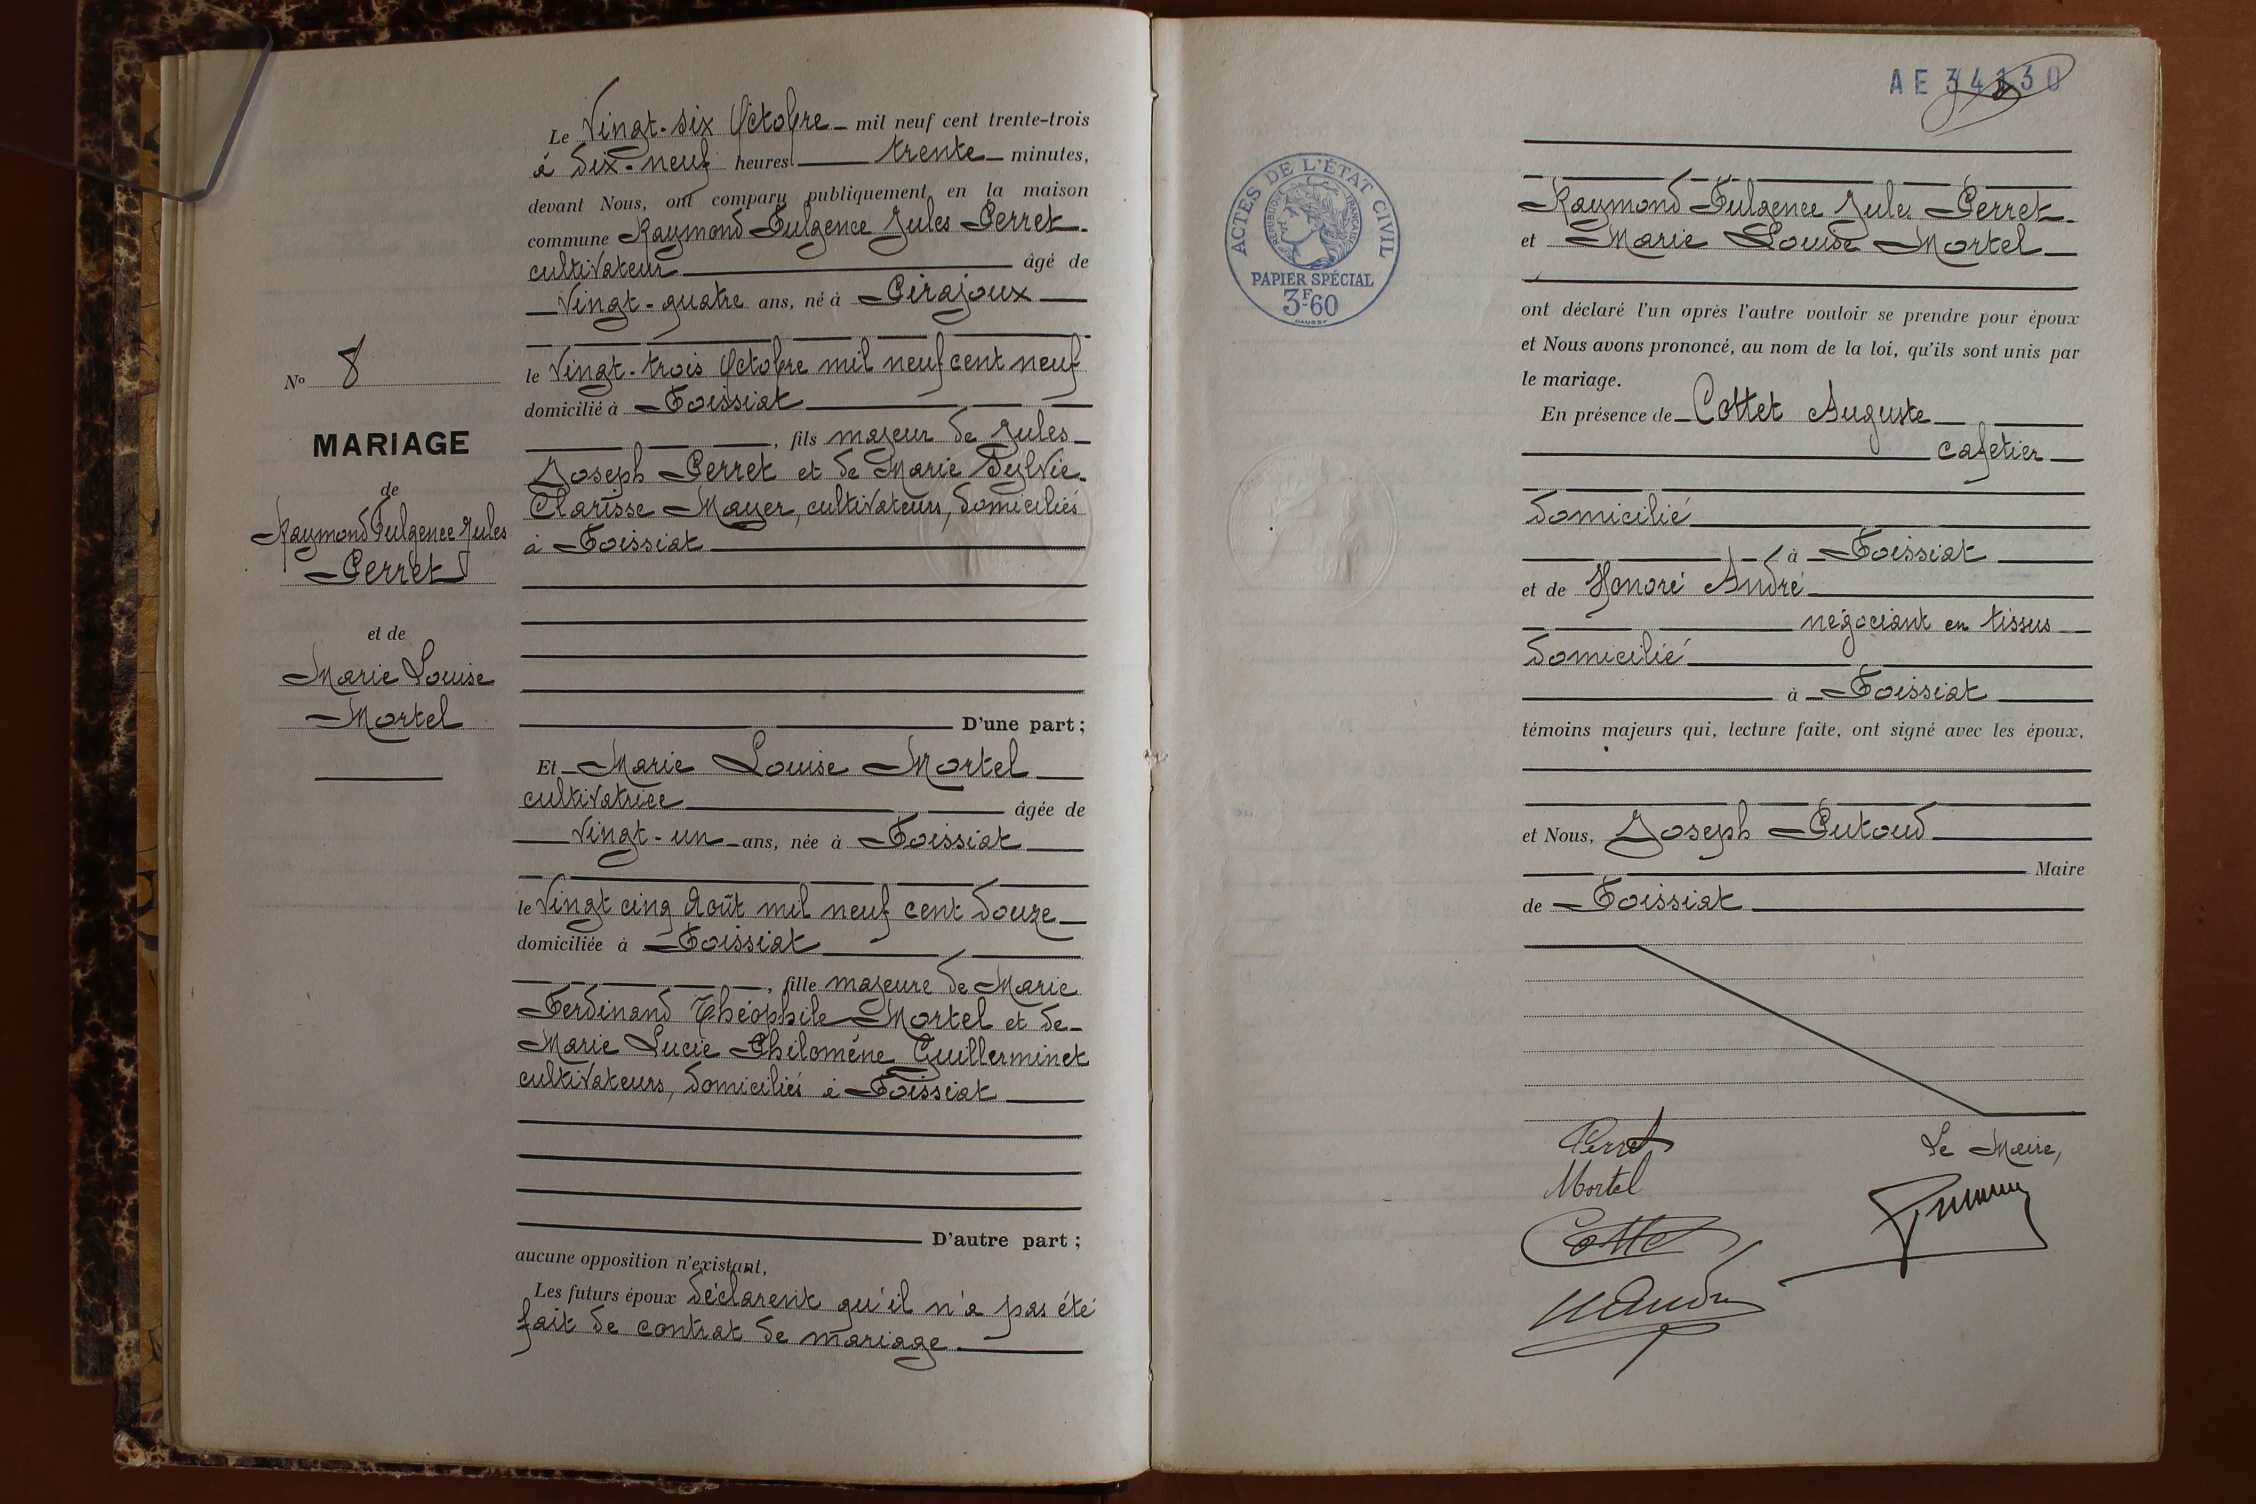 Le Vingt-six Octobre mil neuf cent trente-trois
à dix-neuf heures trente minutes,
devant Nous, ont comparu publiquement en la maison
commune Raymond Fulgence Jules Perret
cultivateur âgé de
Vingt-quatre ans, né à Pirajoux
le Vingt-trois Octobre mil neuf cent neuf
domicilié à Foissiat
, fils majeur de Jules
Joseph Perret et de Marie Sylvie
Clarisse Mayer, cultivateurs, domiciliés
à Foissiat
D'une part ;
Et Marie Louise Mortel
cultivatrice âgée de
Vingt-un ans, née à Foissiat
le Vingt cinq Août mil neuf cent douze
domiciliée à Foissiat
, fille majeure de Marie
Ferdinand Théophile Mortel et de
Marie Lucie Philomène Guillerminet
cultivateurs, domiciliés à Foissiat
D'autre part ;
aucune opposition n'existant,
Les futurs époux déclarent qu'il n'a pas été
fait de contrat de mariage
No 8
MARIAGE
de
Raymond Fulgence Jules
Perret
et de
Marie Louise
Mortel
AE 34130
ACTES DE L'ÉTAT CIVIL
RÉPUBLIQUE FRANÇAISE
PAPIER SPÉCIAL
3F60
Raymond Fulgence Jules Perret
et Marie Louise Mortel
ont déclaré l'un après l'autre vouloir se prendre pour époux
et Nous avons prononcé, au nom de la loi, qu'ils sont unis par
le mariage.
En présence de Cottet Auguste
cafetier
domicilié
à Foissiat
et de Honoré André
négociant en tissus
domicilié
à Foissiat
témoins majeurs qui, lecture faite, ont signé avec les époux,
et Nous, Joseph Putoud
Maire
de Foissiat
Perret
Mortel
Cottet
H André
Le Maire,